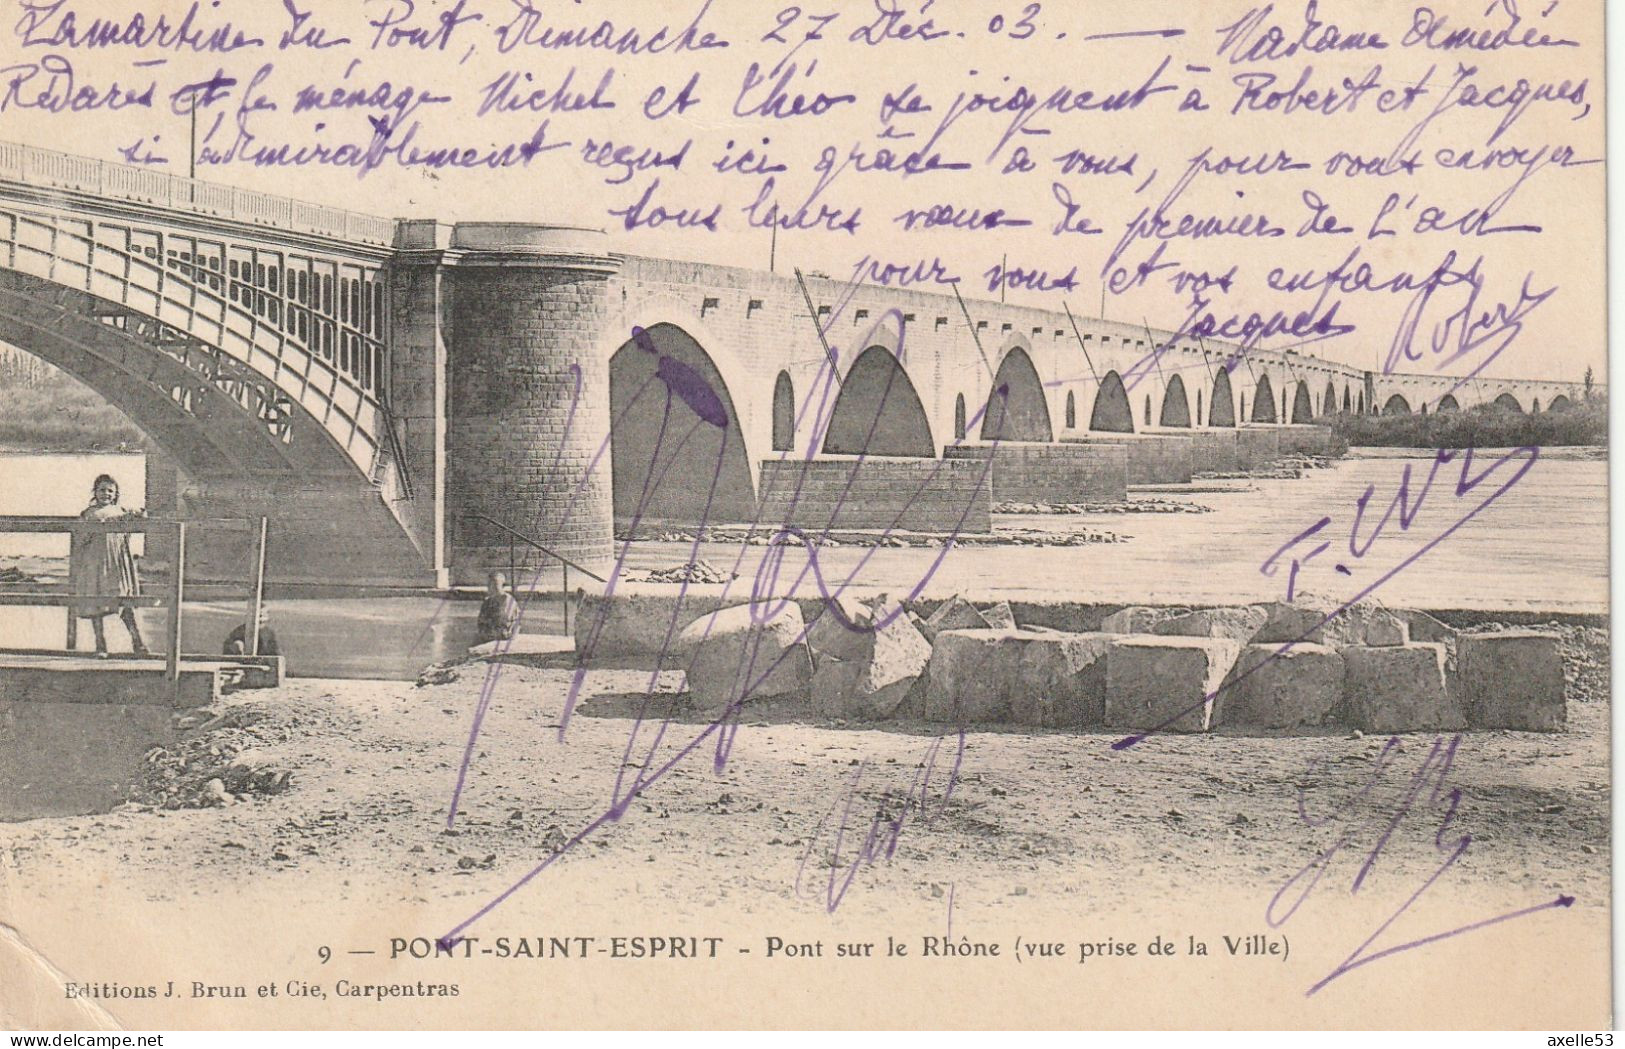 Lamartine du Pont, Dimanche 27 Déc. 03. — Madame Amédée
Redarès et le ménage Michel et Théo se joignent à Robert et Jacques,
si admirablement reçus ici grâce à vous, pour vous envoyer
tous leurs vœux de premier de l'an
pour vous et vos enfants
Jacques Robert
9 — PONT-SAINT-ESPRIT - Pont sur le Rhône (vue prise de la Ville)
Editions J. Brun et Cie, Carpentras
axelle53